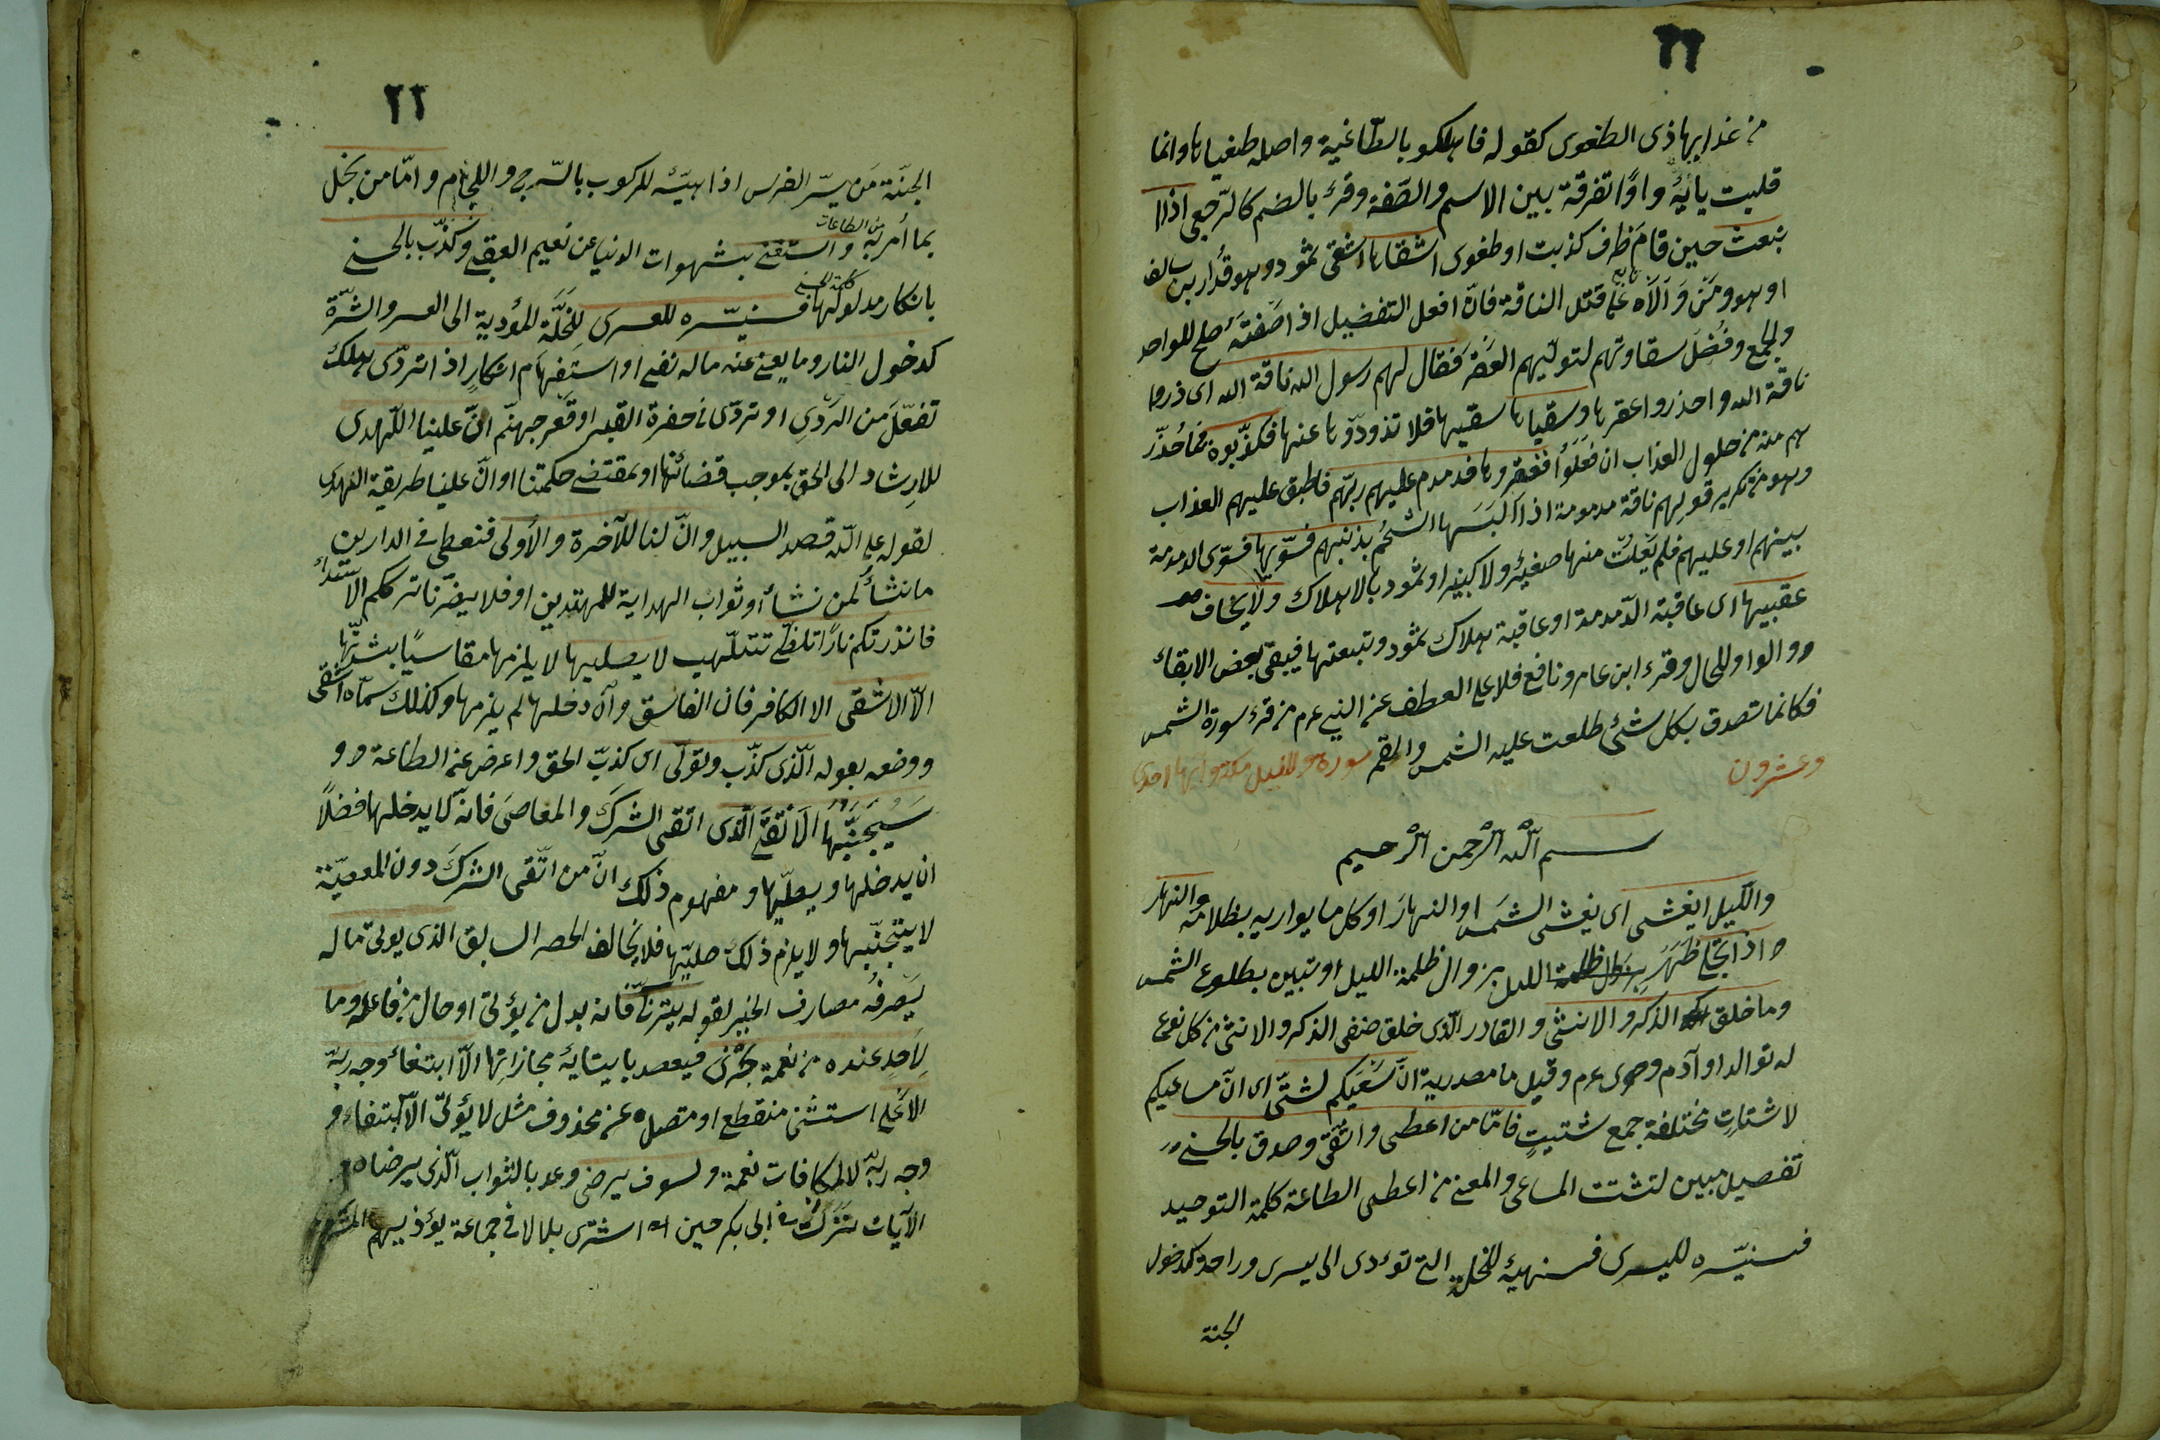 ٢٢
من عذابها ذى الطغوى كقوله فاهلكو بالطّاغية واصله طغياها وانما
قلبت يائه واوًا تفرقة بين الاسم والصّفة وقرئ بالضم كالرّجعى اذا
نبعث حين قام ظرف كذبت او طغوى اشقاها اشقى ثمود وهو قُدار بن سالف
او هو ومَن وَالَاه على قتل الناقة فانّ افعل التفضيل اذا اضفتَه صلح للواحد
والجمع وفُضل شقاوتهم لتولّيهم العقر فقال لهم رسول الله ناقة الله اى ذروا
ناقة الله واحذروا عقرها وسقياها سقيها فلا تذودّوها عنها فكذّبوه فيما حُذّر
هم منه من حلول العذاب ان فعَلوُا فعقروها فدمدم عليهم ربّهم فاطبق عليهم العذاب
وهو من تكرير قولهم ناقة مدمومة اذا البَسَها الشحُم بذنبهم فسوّيها فسوّى الدمدمة
بينهم او عليهم فلم يَفلتْ منها صغيرٌ ولا كبير او ثمود بالاهلاك ولا يخاف
عقبيها اى عاقبة الدّمدمة او عاقبة هلاك ثمود وتبعتها فيبقى بعض الابقاء
والواو للحال وقرء ابن عامر ونافع فلا على العطف عن النبى عم من قرء سورة الشمس
فكانما تصدق بكل شئ طلعت عليه الشمس والقمر سورة والليل مكية وايها احدى
وعشرون
بسم الله الرّحمن الرّحيم
والّيل اذا يغشى اى يغشى الشمسَ او النهارَ او كل ما يواريه بظلامه والنهار
اذا تجلّى ظَهَرَ بزوال ظلمة الليل او تبين بطلوع الشمس
وما خلق الذكر والانثى والقادر الّذى خلق صنفى الذكر والانثى من كل نوع
له توالد او آدم وحوى عم وقيل ما مصدرية انّ سَعْيَكم لشتّى اى انّ مساعيكم
لاشتاتٍ مختلفة جمع شتيتٍ فامّا من اعطى واتّقى وصدق بالحسنى
تفصيل مبين لتشتت المساعى والمعنى من اعطى الطاعة كلمة التوحيد
فسنيسّره لليسرى فسنهيئه للخلّة التى تؤدى الى يسر وراحة كدخول
الجنة
٢٢
الجنّة مَن يسّر الفرس اذا هيّئه للركوب بالسّرج واللجام وامّا من بخل
بما أمر به من الطاعات واستغنى بشهوات الدنيا عن نعيم العقبى وكذّب بالحسنى
بانكار مدلولها كلمة الحسنى فسنيسّره للعسرى للخلَّة المؤدية الى العسر والشرّة
كدخول النار وما يغنى عنه ماله نفى او استفهام انكارٍ اذا تردّى هلك
تفعّل من الردِّى او تردّى فى حفرة القبر او قعر جهنّم انّ علينا للهدى
للارشاد الى الحق بموجب قضائنا او بمقتضى حكمتنا او انّ علينا طريقة الهدى
لقوله على الله قصد السبيل وانّ لنا للآخرة والأولى فنعطى فى الدارين
ما نشأ لمن نشأ او ثواب الهداية للمهتدين او فلا يضرّنا ترككم الاهتداء
فانذرتكم نارًا تلظّى تتلهّب لا يصليها لا يلزمها مقاسيًا بشدّتها
الّا الاشقى الا الكافر فان الفاسق وان دخلها لم يلزمها وكذلك سمّاه اشقى
ووصفه بقوله الّذى كذّب وتولّى اى كذبّ الحق واعرض عن الطاعة
سَيُجَنَّبُهَا الَاتْقَى الّذى اتقى الشرك والمعاصَى فانّه لا يدخلها فضلًا
ان يدخلها ويصليّها ومفهوم ذلك انّ من اتّقى الشرك دون المعصيّة
لا يتجنّبها ولا يلزم ذلك صليّها فلا يخالف الحصر السابق الذى يؤتى ماله
يَصْرفُه مصارف الخير لقوله يتزكّى فانه بدل من يؤتى او حال من فاعله وما
لِاَحدٍ عنده من نعمة تجزى فيقصد بايتائه مجازاتها الّا ابتغاء وجه ربّه
الأعلى استثنى منقطع او متصل عن محذوف مثل لا يؤتى الّا ابتغاء
وجه ربّه لا لمكافات نعمة ولسوف يرضى وعد بالثواب الّذى يرضاه
الآيات نَزَلت فى ابى بكر حين اشترى بلالا فى جماعة يؤذيهم المشركون